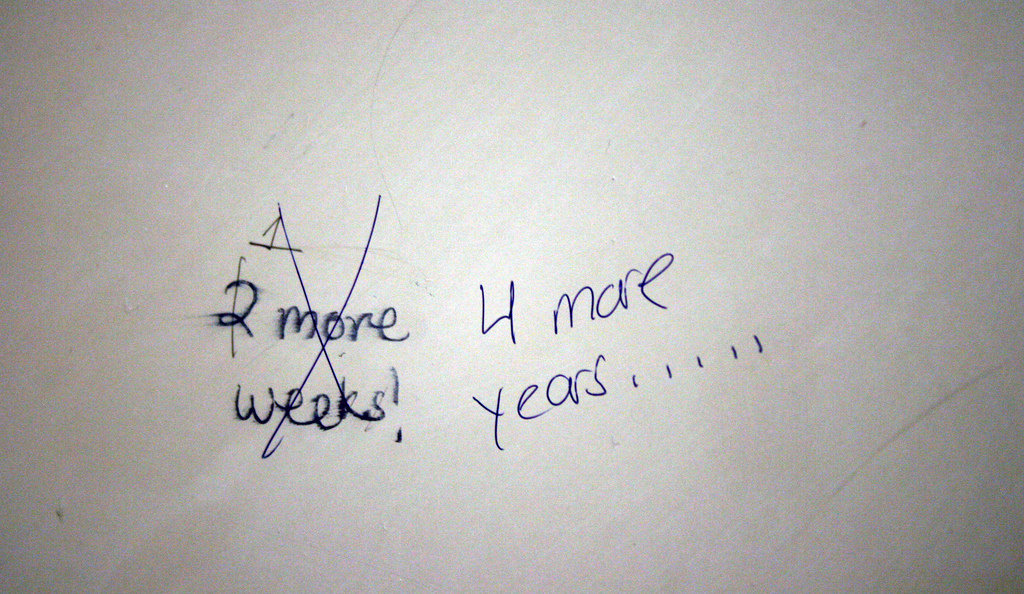 1
2 more
weeks!
4 more
years......